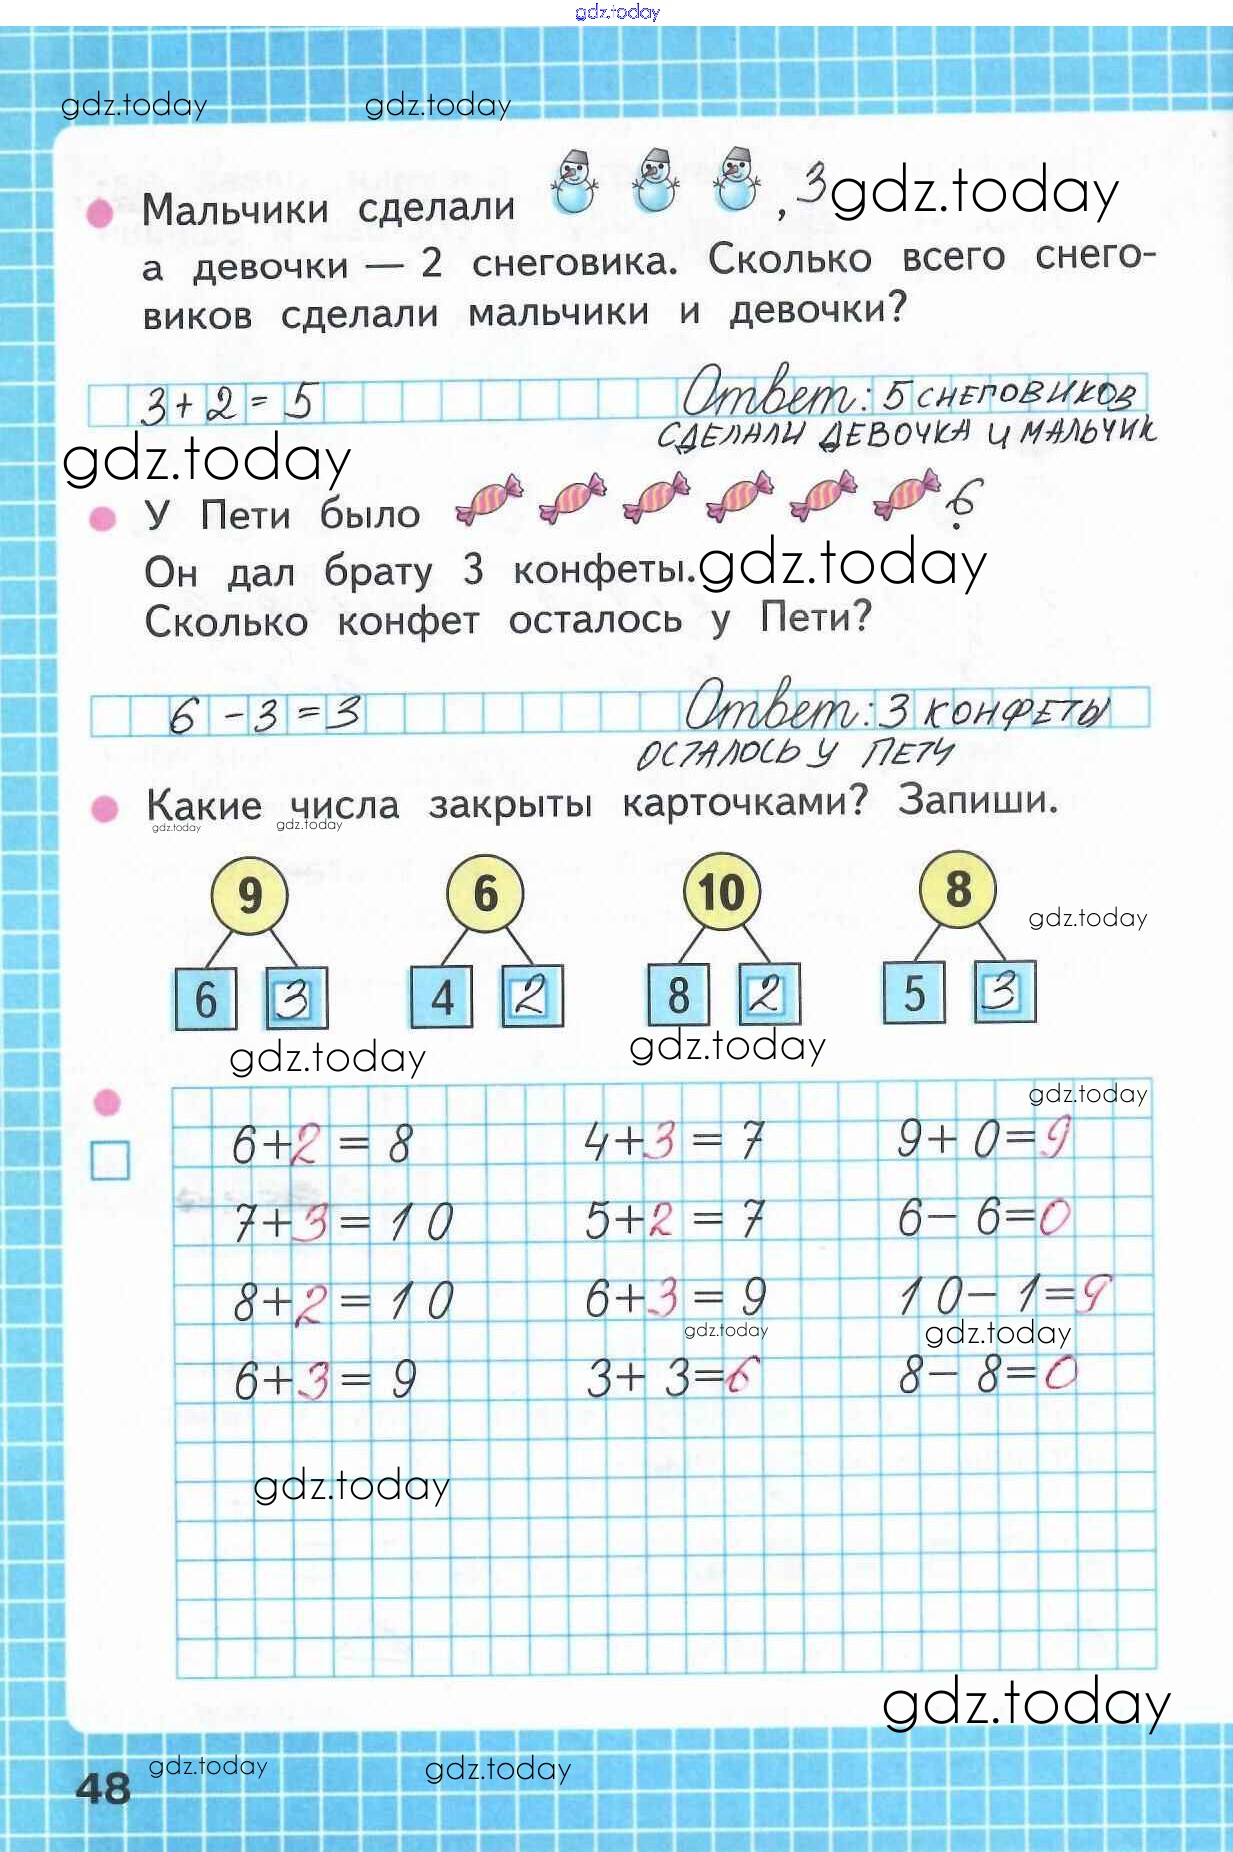 gdz.today
gdz.today gdz.today
Мальчики сделали , 3 gdz.today
а девочки — 2 снеговика. Сколько всего снего-
виков сделали мальчики и девочки?
3+2=5 Ответ: 5 СНЕГОВИКОВ
СДЕЛАЛИ ДЕВОЧКА И МАЛЬЧИК
gdz.today
У Пети было 6.
Он дал брату 3 конфеты. gdz.today
Сколько конфет осталось у Пети?
6-3=3 Ответ: 3 КОНФЕТЫ
ОСТАЛОСЬ У ПЕТИ
Какие числа закрыты карточками? Запиши.
gdz.today gdz.today
9 6 10 8
gdz.today
6 3 4 2 8 2 5 3
gdz.today gdz.today
gdz.today
6+2=8 4+3=7 9+0=9
7+3=10 5+2=7 6-6=0
8+2=10 6+3=9 10-1=9
gdz.today gdz.today
6+3=9 3+3=6 8-8=0
gdz.today
gdz.today
48 gdz.today gdz.today